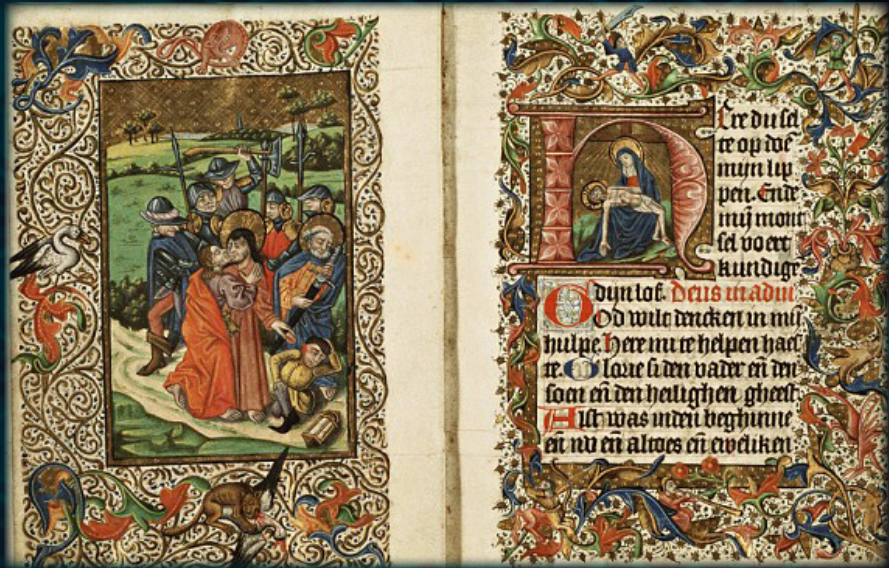 HEre du sel
te op doē
mijn lip
pen. Ende
mȳ mont
sel voert
kundige
dijn lof. Deus in adiu
God wilt dencken in mij
hulpe. Here mi te helpen haes
te. Glorie si den vader eñ den
soen eñ den heilighen gheest
Alst was inden beghinne
eñ nv eñ altoes eñ eweliken